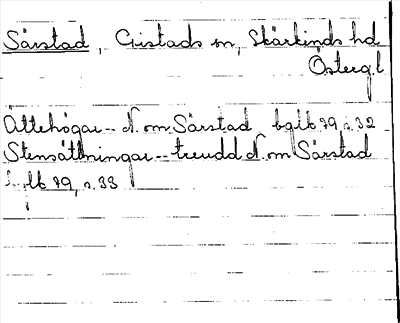 Särstad, Gistads sn, Skärkinds hd.
Österg.l
Ättehögar -- N. om Särstad bglb 79, s. 32
Stensättningar -- treudd N. om Särstad
bglb 79, s. 33